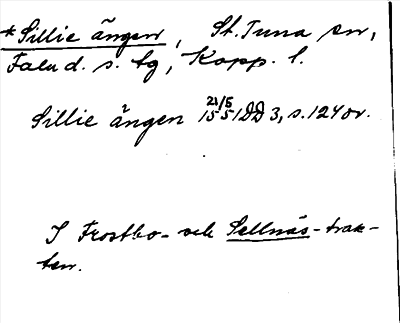 *Sillie ängen, St. Tuna sn,
Falu d. s. tg, Kopp. l.
Sillie ängen 21/5 1551 DD 3, s. 124 ov.
I Frostbo- och Sellnäs-trak-
ten.